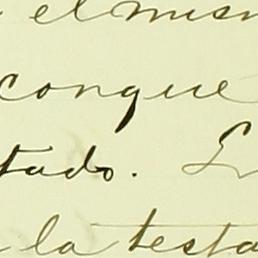 el mism
conque
tado. En
la testa